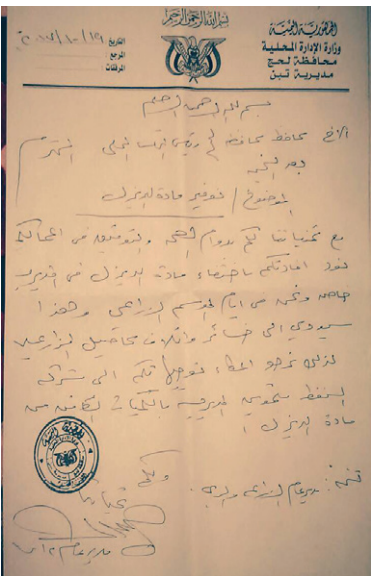 بسم الله الرحمن الرحيم
الجمهورية اليمنية
وزارة الإدارة المحلية
محافظة لحج
مديرية تبن
التاريخ
المرجع
المرفقات
بسم الله الرحمن الرحيم
الأخ محافظ محافظة لحج رئيس المجلس المحلي المحترم
بعد التحية
الموضوع / توفير مادة الديزل
مع تمنياتنا لكم بدوام الصحة والتوفيق في اعمالكم
نود افادتكم باختفاء مادة الديزل في المديرية
خاصة ونحن في ايام الموسم الزراعي وهذا
سيؤدي الى خسائر واتلاف محاصيل المزارعين
لذلك نرجو اعطاء توجيهاتكم الى شركة
النفط بتموين المديرية بالكميات الكافية من
مادة الديزل
ولكم
تحياتنا
مدير عام